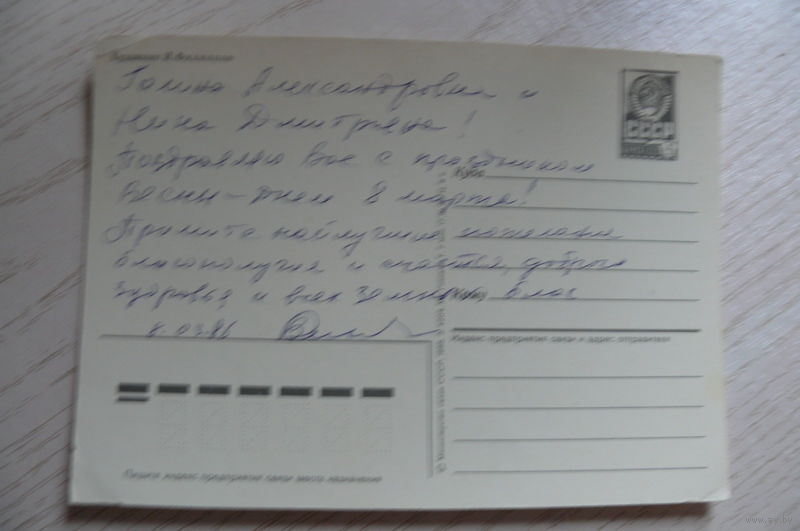 Художник
Галина Александровна и
Нина Дмитревна!
Поздравляю Вас с праздником
Весны - Днем 8 марта!
Примите наилучшие пожелания
благополучия и счастья, доброго
здоровья и всех земных благ
8.03.86
СССР
Куда
Кому
Индекс предприятия связи и адрес отправителя
Пишите индекс предприятия связи места назначения
© Министерство связи СССР
www.ay.by